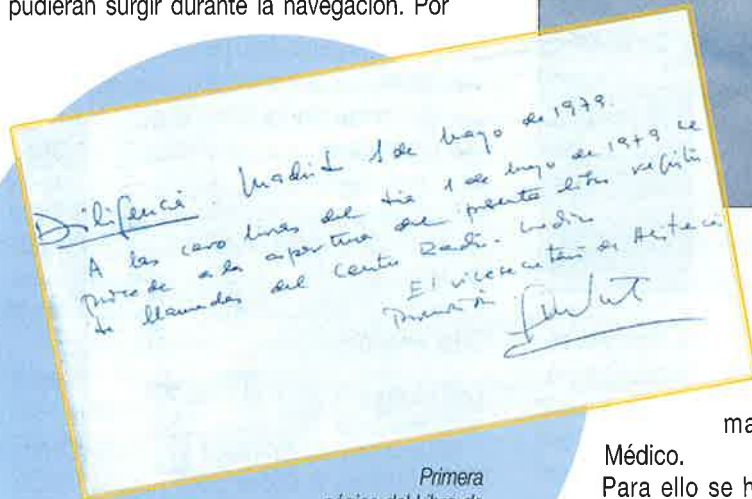 pudieran surgir durante la navegación. Por
Diligencia. Madrid 1 de Mayo de 1979.
A las cero horas del día 1 de Mayo de 1979 se
procede a la apertura del presente libro registro
de llamadas del Centro Radio-Medico
El vicesecretario de Asistencia
Primera
página del Libro de
ma
Médico.
Para ello se h